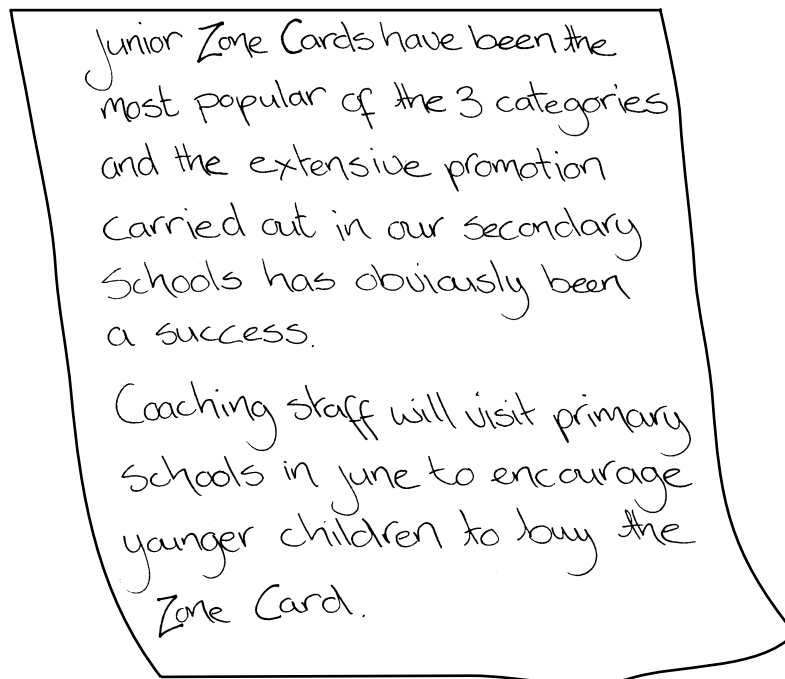 Junior Zone Cards have been the
most popular of the 3 categories
and the extensive promotion
carried out in our secondary
schools has obviously been
a success.
Coaching staff will visit primary
schools in june to encourage
younger children to buy the
Zone Card.